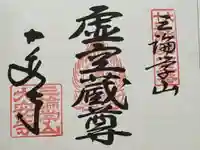 三論学山
虚空蔵尊
大安寺